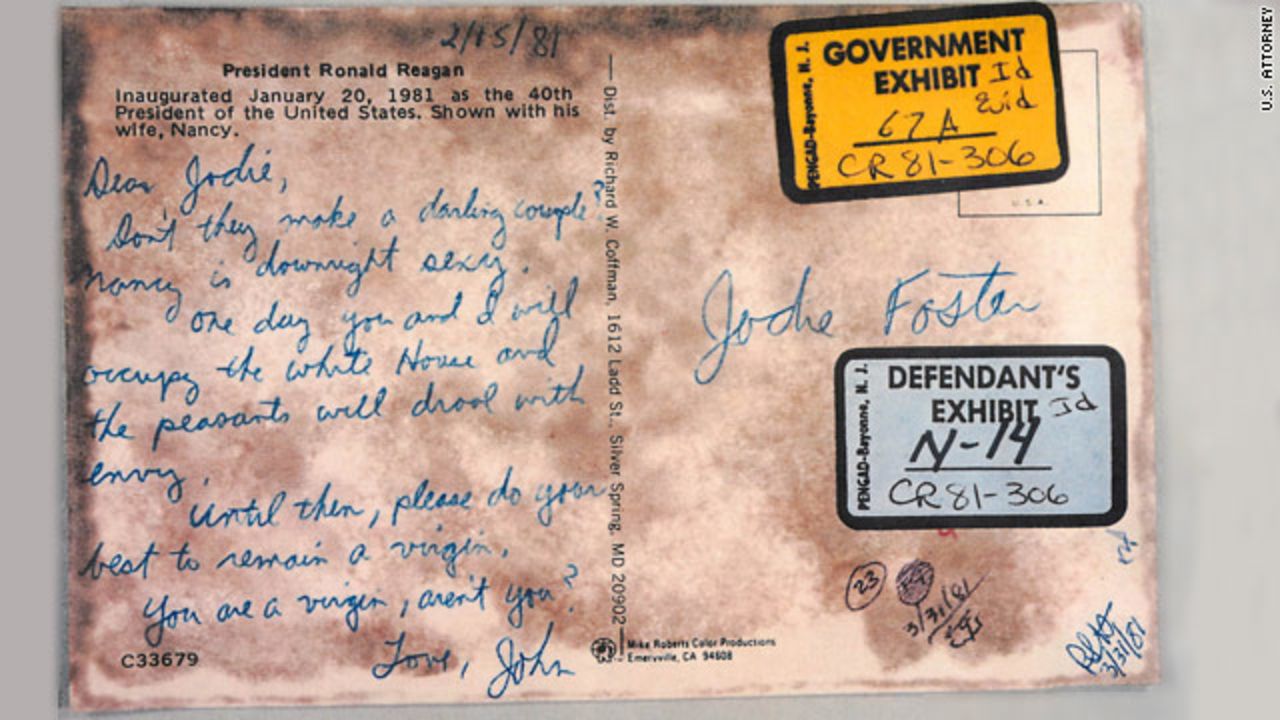 2/15/81
President Ronald Reagan
Inaugurated January 20, 1981 as the 40th
President of the United States. Shown with his
wife, Nancy.
Dear Jodie,
Don't they make a darling couple?
Nancy is downright sexy.
One day you and I will
occupy the White House and
the peasants will drool with
envy.
Until then, please do your
best to remain a virgin.
You are a virgin, aren't you?
Love, John
C33679
Dist. by Richard W. Coffman, 1612 Ladd St., Silver Spring, MD 20902
Mike Roberts Color Productions
Emeryville, CA 94608
PENGAD-Bayonne, N. J.
GOVERNMENT
EXHIBIT Id
Evid
67A
CR 81-306
U.S.A.
Jodie Foster
PENGAD-Bayonne, N. J.
DEFENDANT'S
EXHIBIT Id
N-14
CR 81-306
23
3/31/81
3/31/81
U.S. ATTORNEY